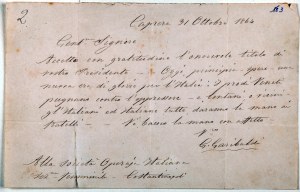 2
163
Caprera 31 Ottobre 1864
Gent. Signore
Accetto con gratitudine l'onorevole titolo di
vostro Presidente — Oggi principia
nuova era di gloria per l'Italia: i prodi Veneti
pugnano contro l'oppressore —
gl'Italiani ed italiane tutti daranno la mano ai
fratelli — Vi bacio la mano con affetto
V.ro
G. Garibaldi
Alla Società Operaja Italiana
Costantinopoli